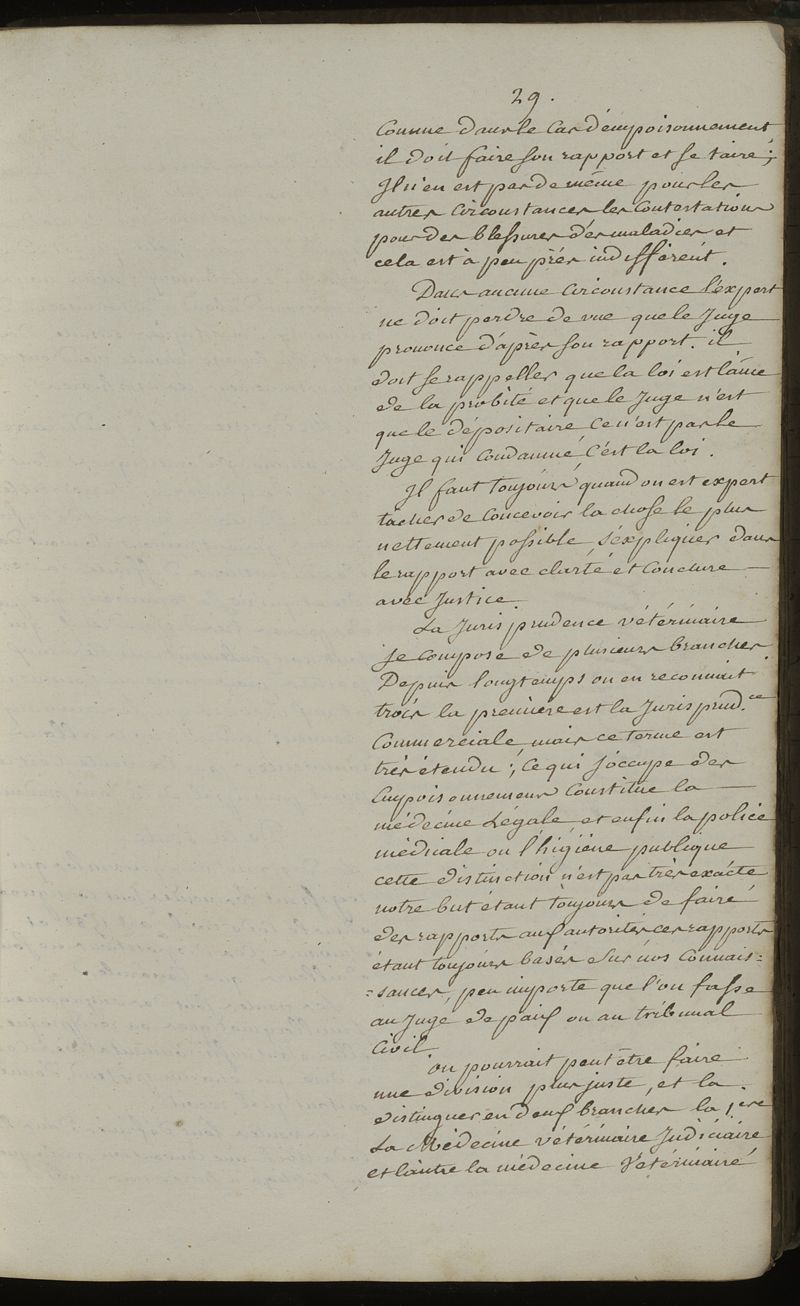 29.
Comme dans le Cas d'émpoisonnement,
il doit faire son rapport et se taire;
Il n'en est pas de même pour les
autres Circonstances les Contestations
pour des blessures des maladies et
cela est à peu près indifférent.
Dans aucune Circonstance l'expert
ne doit perdre de vue que le Juge
prononce d'après son rapport. il
doit se rappeller que la loi est l'âme
de la probité et que le Juge n'est
que le dépositaire ce n'est pas le
Juge qui Condamne C'est la loi.
Il faut toujours quand on est expert
tâcher de Concevoir la chose le plus
nettement possible, s'éxpliquer dans
le rapport avec clarté et Conclure —
avec Justice.
La Jurisprudence vétérinaire
se compose de plusieurs branches
Depuis longtemps on en reconnait
trois la première est la Jurisprud.ce
Commerciale mais ce terme est
très étendu; Ce qui s'occupe des
Empoisonnemens Constitue la —
médecine Légale, et enfin la police
médicale ou l'higiène publique
cette distinction n'est pas très exacte
notre but étant toujours de faire
des rapports aux autorités ces rapports
étant toujours basés sur nos Connais=
=sances, peu importe que l'on fasse
au Juge de paix ou au tribunal
Civil
on pourrait peut être faire
une division plus juste, et la
distinguer en deux branches la 1.ere
La Médecine vétérinaire Judiciaire
et l'autre la médecine Vétérinaire